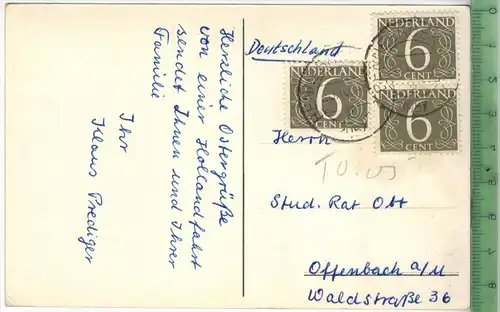 Herzliche Ostergrüße
von einer Hollandfahrt
sendet Ihnen und Ihrer
Familie
Ihr
Klaus Prediger
Deutschland
NEDERLAND
6
CENT
NEDERLAND
6
CENT
NEDERLAND
6
CENT
Herrn
Stud. Rat Ott
Offenbach a/M
Waldstraße 36